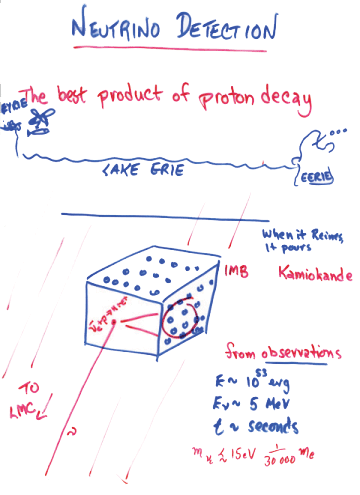 NEUTRINO DETECTION
The best product of proton decay
LAKE ERIE
EERIE
When it Reines,
it pours
IMB Kamiokande
ν̄e+p→n+e+
from observations
E ~ 10^53 erg
Eν ~ 5 MeV
t ~ seconds
TO
LMC
≲ 15eV 1/30000 me